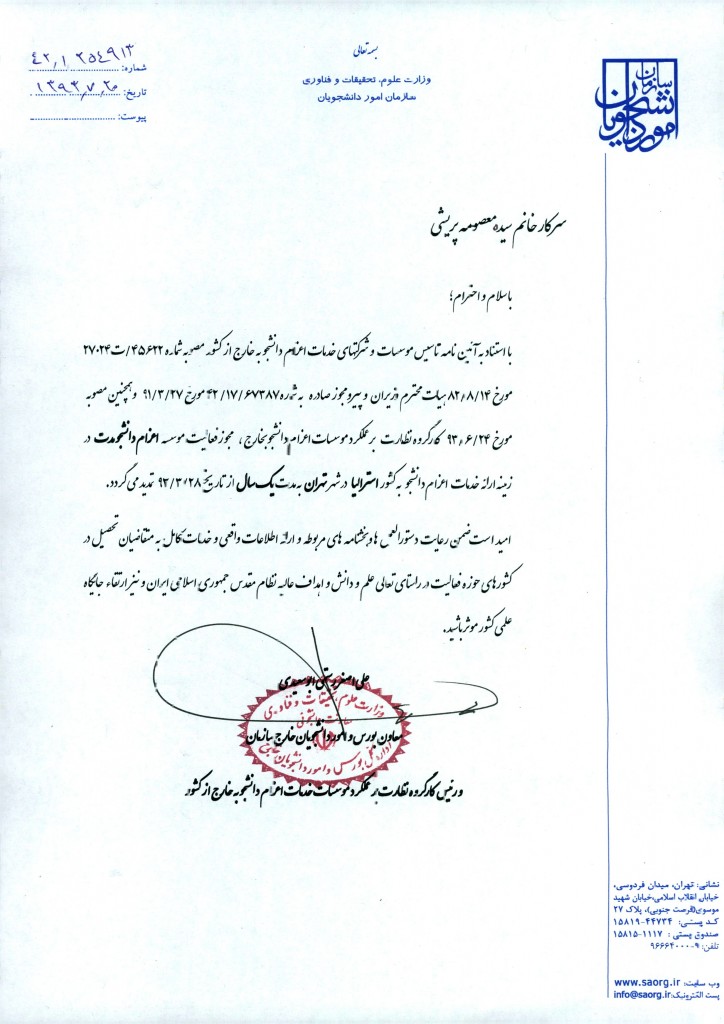 بسمه تعالی
وزارت علوم، تحقیقات و فناوری
سازمان امور دانشجویان
سازمان امور دانشجویان
شماره: ۴۲/۱ ۲۵۴۹۱۳
تاریخ: ۱۳۹۳/۷/۲۰
پیوست:
سرکار خانم سیده معصومه پریشی
با سلام و احترام؛
با استناد به آئین نامه تاسیس موسسات و شرکتهای خدمات اعزام دانشجو به خارج از کشور مصوبه شماره ۴۵۶۲۲/ت۲۷۰۲۴
مورخ ۸۲/۸/۱۴ هیات محترم وزیران و پیرو مجوز صادره به شماره ۴۲/۱۷/۶۷۳۸۷ مورخ ۹۱/۳/۲۷ و همچنین مصوبه
مورخ ۹۳/۶/۲۴ کارگروه نظارت بر عملکرد موسسات اعزام دانشجو بخارج، مجوز فعالیت موسسه اعزام دانشجو مدت در
زمینه ارائه خدمات اعزام دانشجو به کشور استرالیا در شهر تهران به مدت یک سال از تاریخ ۹۲/۳/۲۸ تمدید می گردد.
امید است ضمن رعایت دستورالعمل ها و بخشنامه های مربوطه و ارائه اطلاعات واقعی و خدمات کامل به متقاضیان تحصیل در
کشورهای حوزه فعالیت در راستای تعالی علم و دانش و اهداف عالیه نظام مقدس جمهوری اسلامی ایران و نیز ارتقاء جایگاه
علمی کشور موثر باشید.
علی اصغر رستمی ابوسعیدی
معاون بورس و امور دانشجویان خارج سازمان
و رئیس کارگروه نظارت بر عملکرد موسسات خدمات اعزام دانشجو به خارج از کشور
وزارت علوم، تحقیقات و فناوری
نشانی: تهران، میدان فردوسی،
خیابان انقلاب اسلامی،خیابان شهید
موسوی(فرصت جنوبی)، پلاک ۲۷
کد پستی: ۴۴۷۳۴-۱۵۸۱۹
صندوق پستی: ۱۱۱۷-۱۵۸۱۵
تلفن: ۹-۹۶۶۶۴۰۰۰
وب سایت: www.saorg.ir
پست الکترونیک:info@saorg.ir